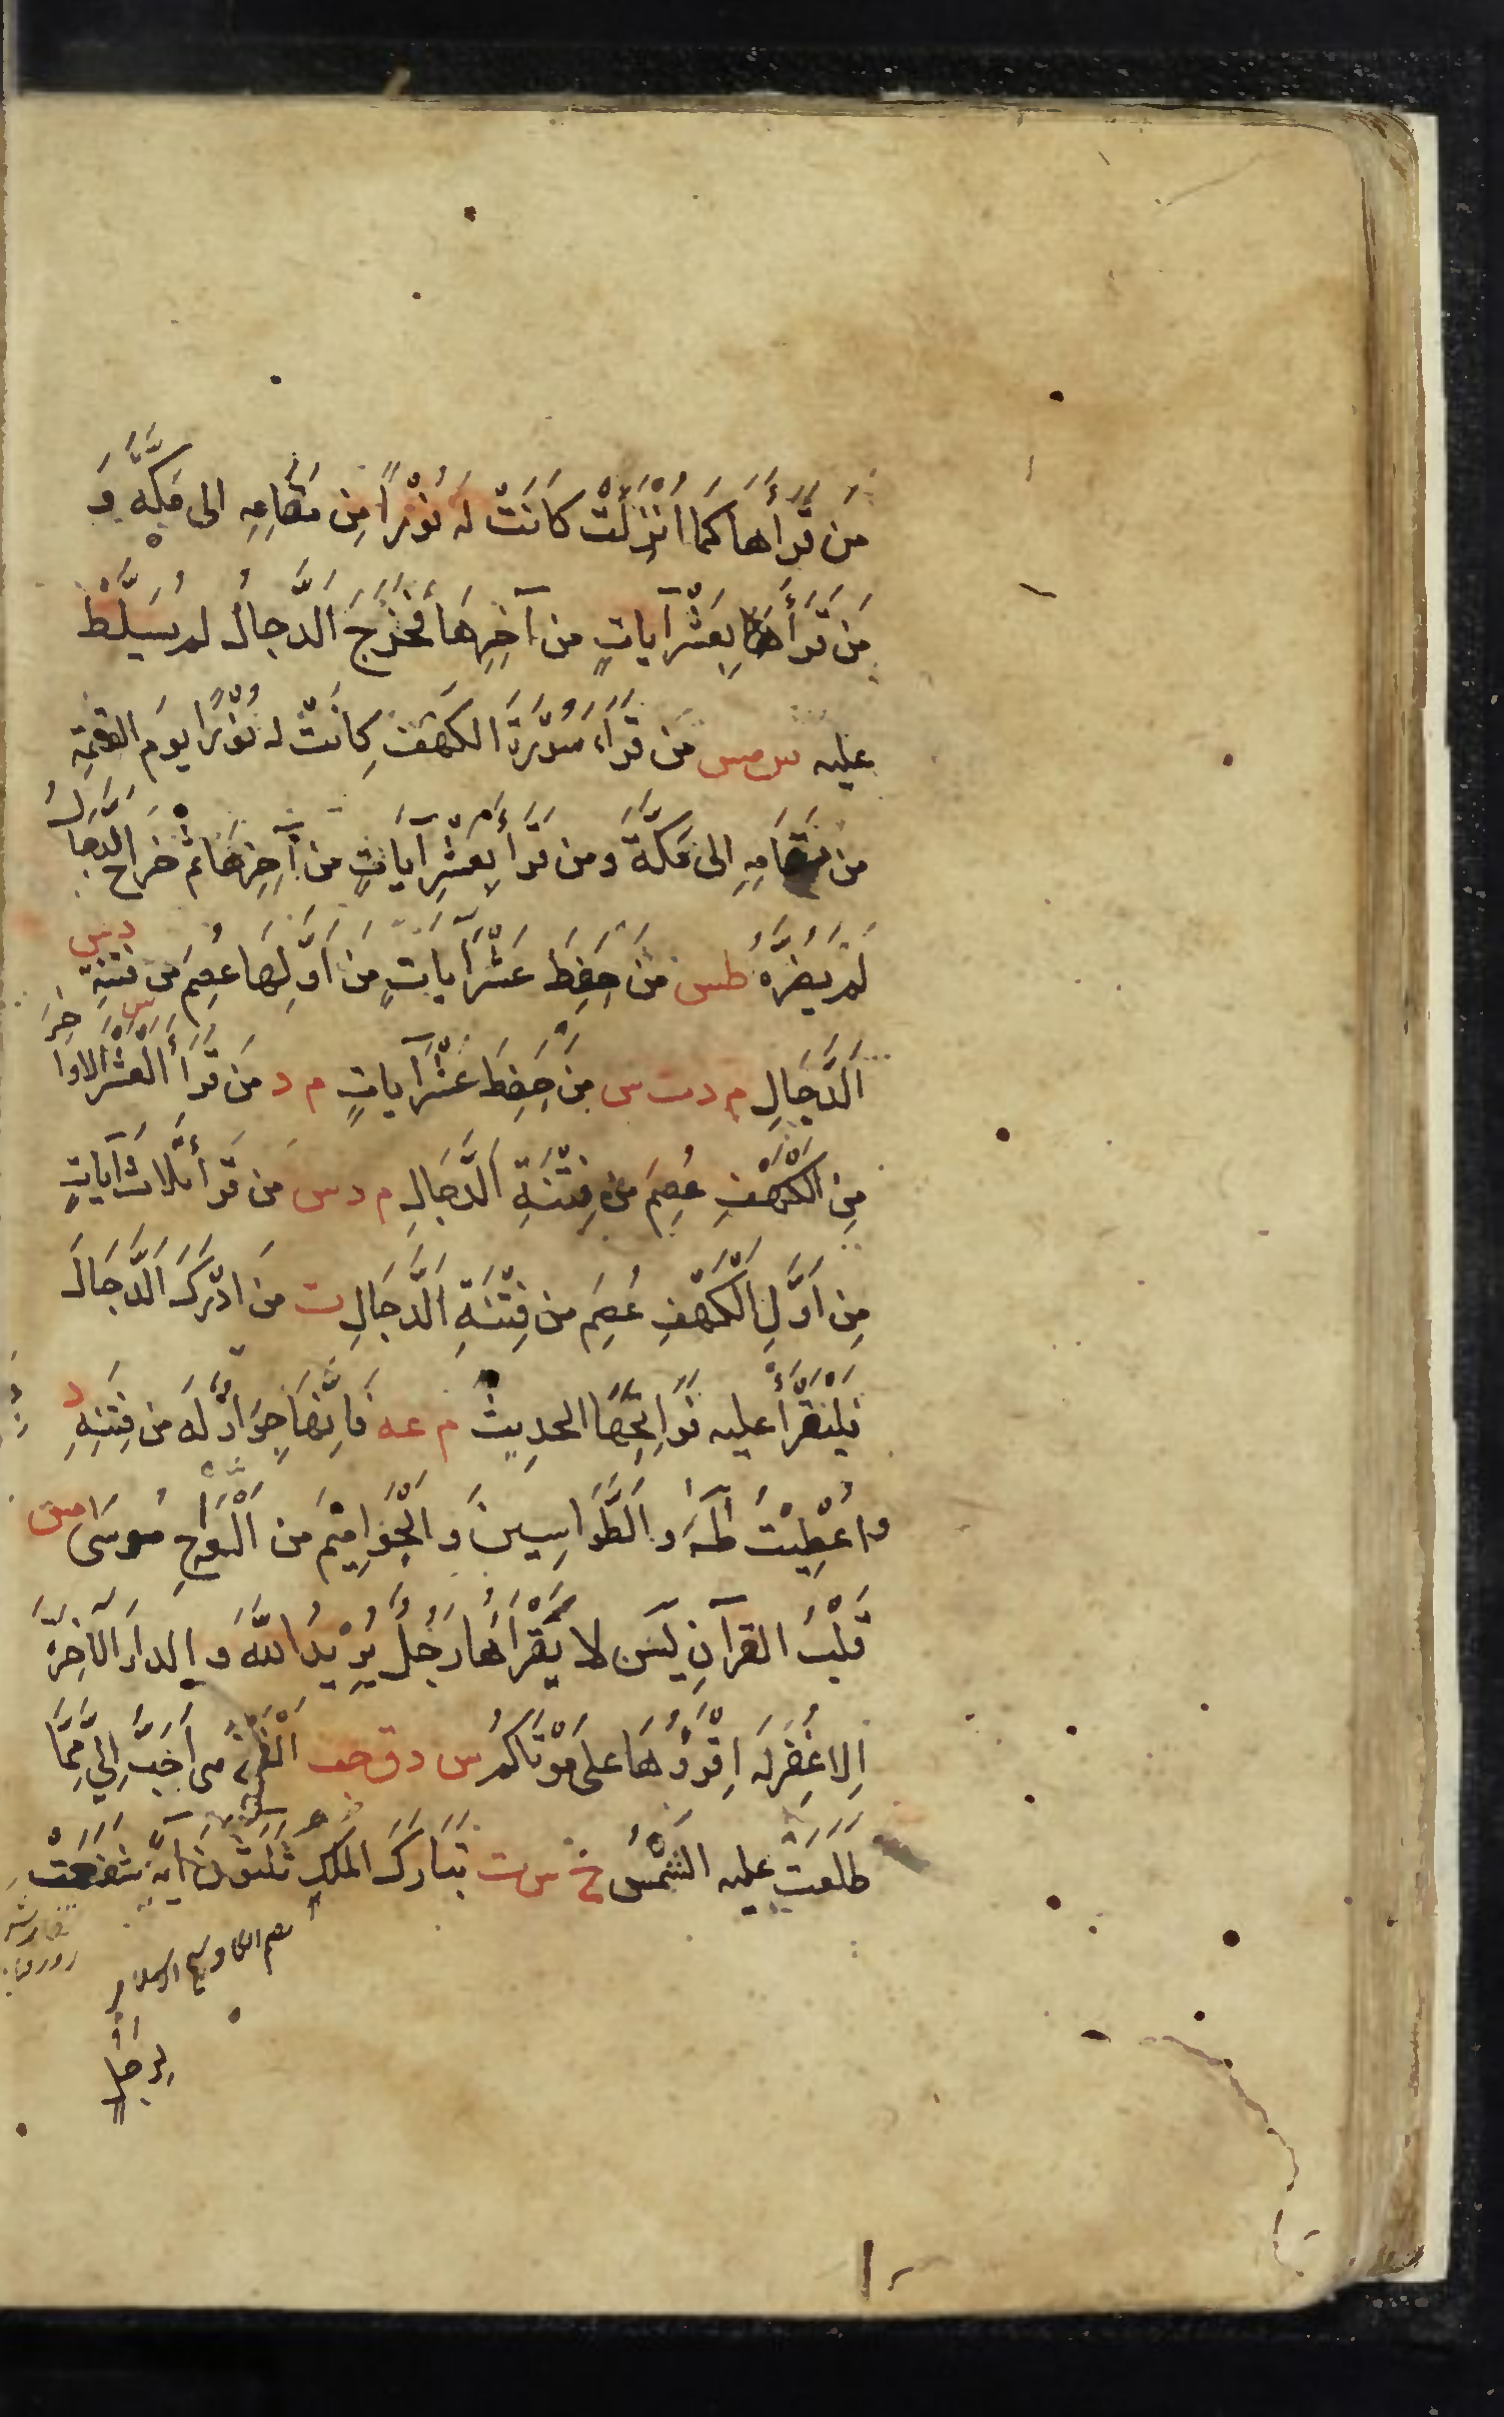 مَن قَرَأَهَا كَمَا اُنْزِلَتْ كَانَتْ لَهُ نُوْرًا مِن مَقَامِهِ الى مَكَّةَ وَ
مَن قَرَأَهَا بِعَشْرِ آيَاتٍ مِن آخِرِهَا فَخَرَجَ الدَّجالُ لم يُسَلَّطْ
عليه س مس مَن قَرَأَ سُوْرَةَ الكَهَفِ كَانَتْ له نُوْرًا يومَ القيمةِ
من مَقَامِهِ الى مَكَّةَ ومن قَرَأَ بِعَشْرِ آيَاتٍ من آخِرِهَا ثم خَرَجَ الدَّجالُ
لَمْ يَضُرَّهُ طس مَن حَفِظَ عَشْرَ آيَاتٍ مِن اَوَّلِهَا عُصِمَ مِن فِتْنَةِ د س
الدَّجَالِ م د ت س مَن حَفِظَ عَشْرَ آيَاتٍ م د مَن قَرَأَ العَشْرَ الاواخِرَ س
مِن الكَهْفِ عُصِمَ مِن فِتْنَةِ الدَّجَالِ م د س مَن قَرَأَ ثلاثَ آيَاتٍ
مِن اَوَّلِ الكَهْفِ عُصِمَ مِن فِتْنَةِ الدَّجَالِ ت مَن ادْرَكَ الدَّجَالَ
فَلْيَقْرَأْ عليه فَوَاتِحَهَا الحديث م عه فَاِنَّهَا جِوَارٌ لَهُ مِن فِتْنَتِهِ د
واُعْطِيْتُ طٰهٰ وَالطَّوَاسِينَ وَ الحَوَامِيْمَ مِن اَلْوَاحِ مُوسَى مس
قَلْبُ القرآنِ يٰسٓ لا يَقْرَأُهَا رَجُلٌ يُرِيْدُ اللّٰهَ وَ الدارَ الآخِرَةَ
اِلا غُفِرَ لَهُ اِقْرَؤُهَا على مَوْتَاكُمْ س د ق حب اَلْفَتْحُ هى اَحَبُّ اِلَيَّ مِمَّا
طَلَعَتْ عليه الشَّمْسُ خ س ت تَبَارَكَ المُلكِ ثَلٰثُوْنَ آيَةً شَفَعَتْ
لِرَجُلٍ